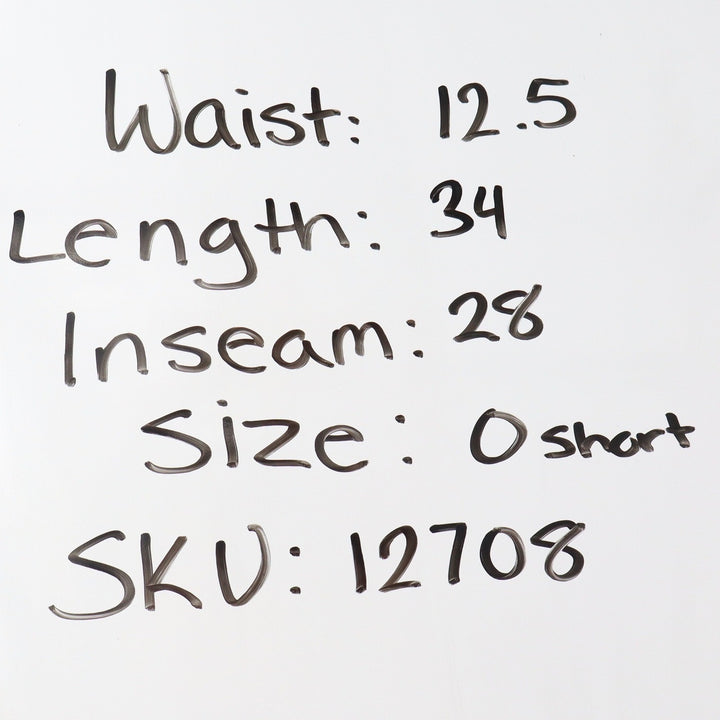 Waist: 12.5
Length: 34
Inseam: 28
Size: 0 short
SKU: 12708